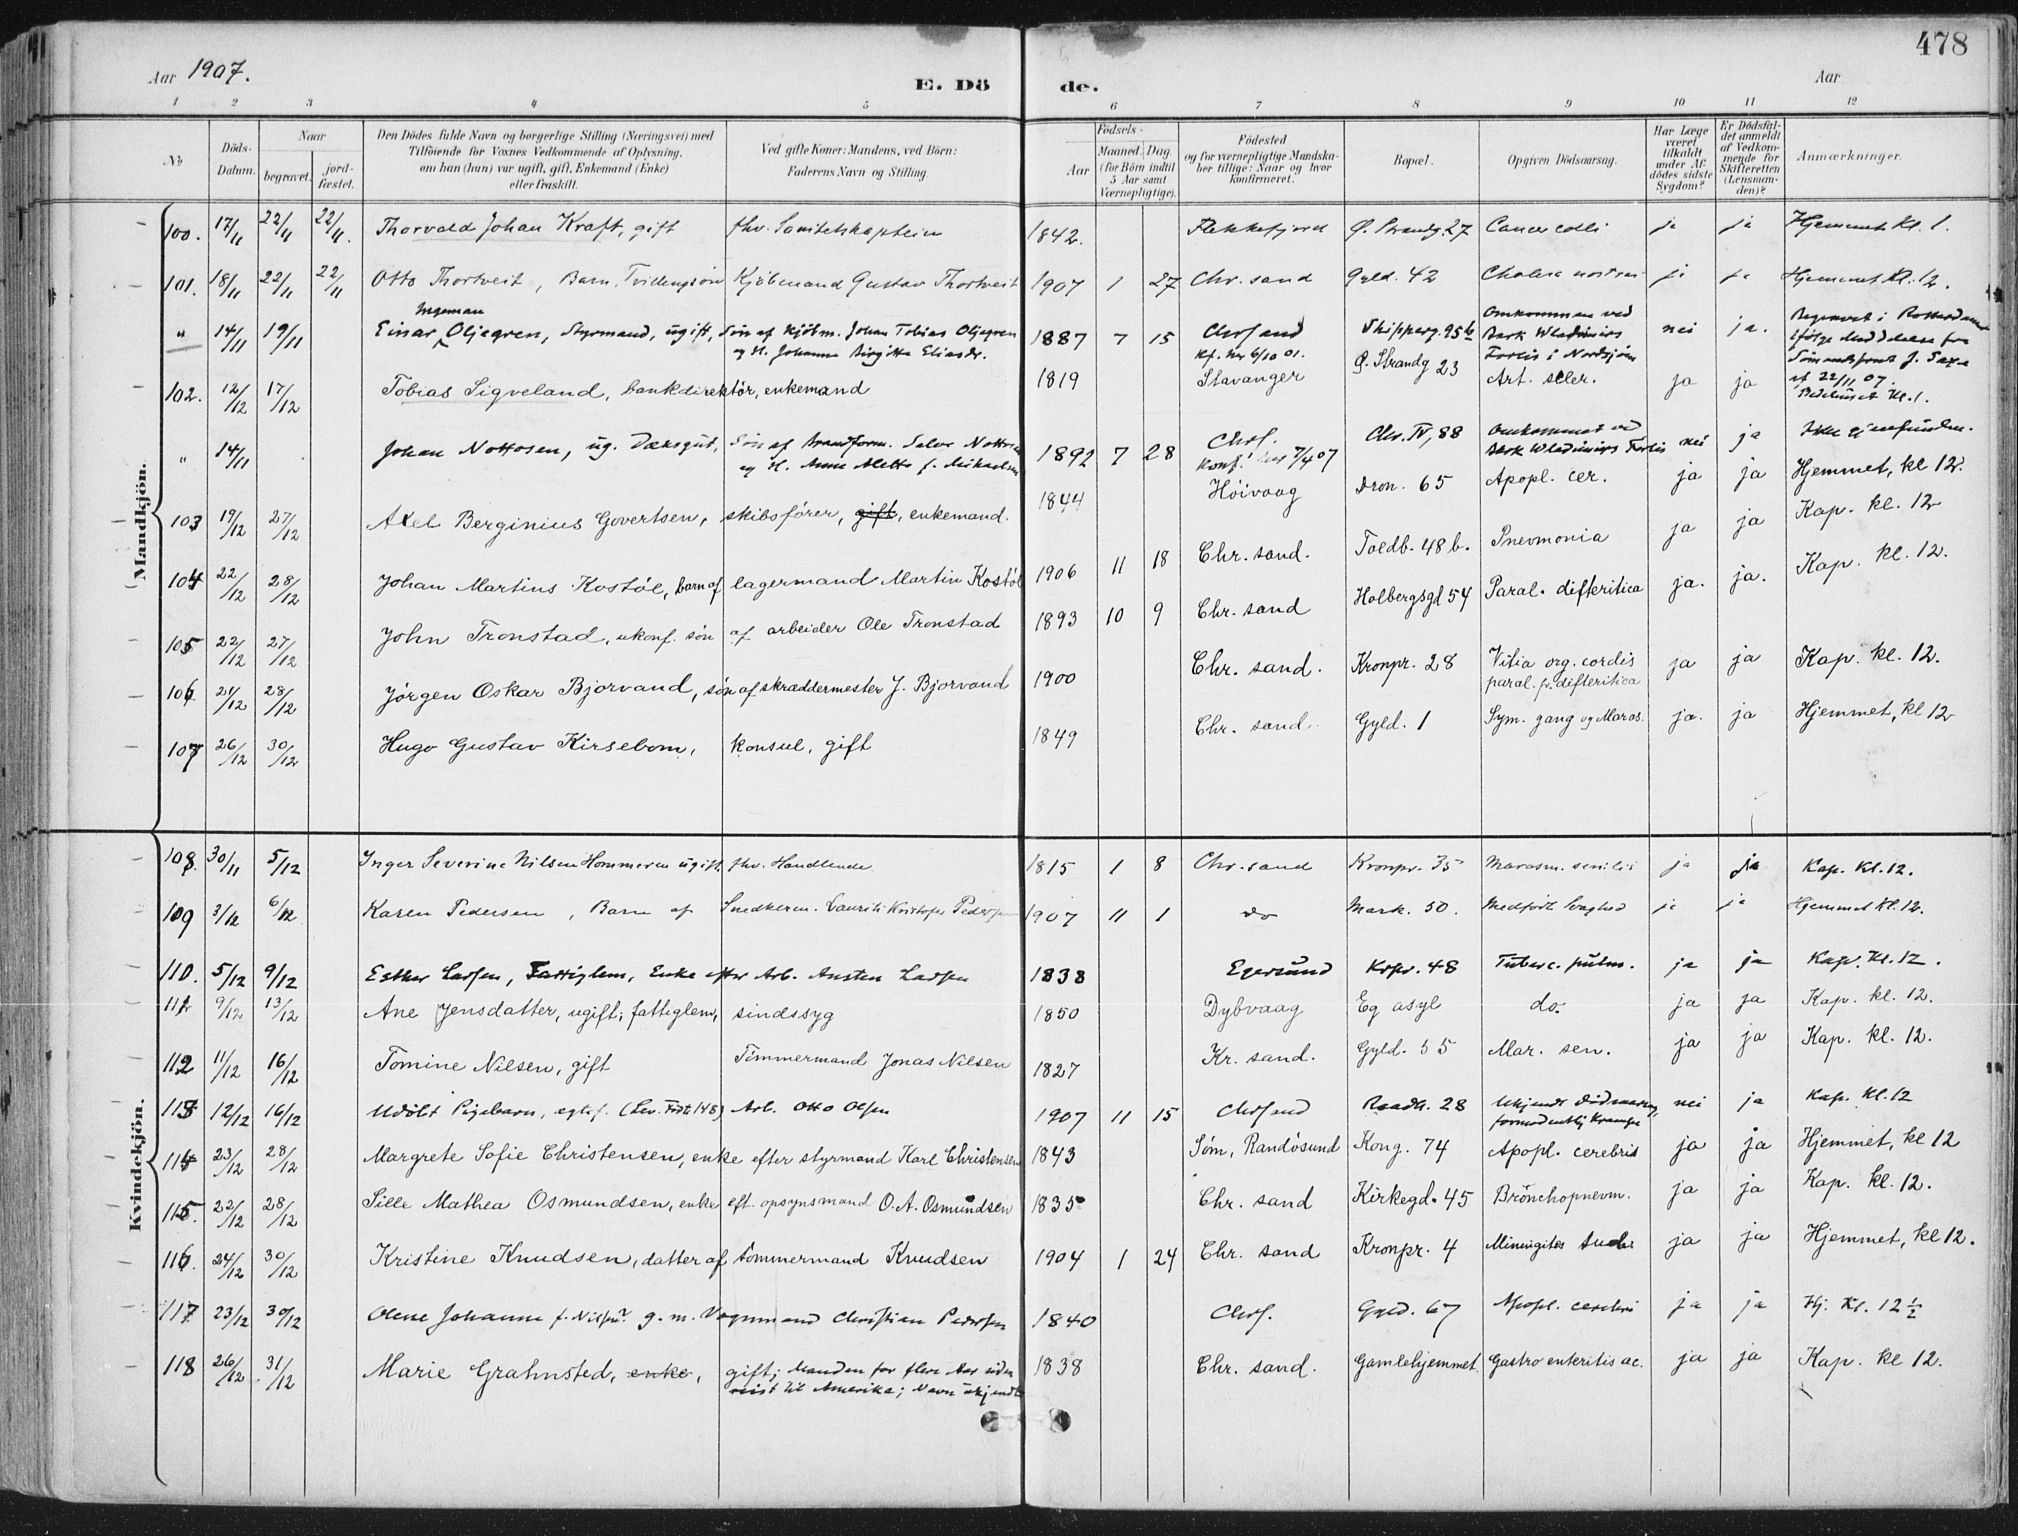 478
Aar 1907.
E. Dö de.
Aar
1 2 3 4 5 6 7 8 9 10 11 12
No
Döds-Datum.
Naar
begravet.
jord-fæstet.
Den Dödes fulde Navn og borgerlige Stilling (Næringsvei) med
Tilföiende for Voxnes Vedkommende af Oplysning,
om han (hun) var ugift, gift, Enkemand (Enke)
eller fraskilt.
Ved gifte Koner: Mandens, ved Börn:
Faderens Navn og Stilling.
Födsels-
Aar
Maaned. Dag.
(for Börn indtil
5 Aar samt
Værnepligtige).
Födested
og for værnepligtige Mandska-
ber tillige: Naar og hvor
konfirmeret.
Bopæl.
Opgiven Dödsaarsag.
Har Læge
været
tilkaldt
under Af-
dödes sidste
Sygdom?
Er Dödsfal-
det anmeldt
af Vedkom-
mende for
Skifteretten
(Lensman-
den)?
Anmærkninger.
Mandkjön.
100. 17/11 22/11 22/11. Thorvald Johan Kraft, gift fhv. Sanitetskaptein 1842. Flekkefjord Ø. Strandg. 27 Cancer coli ja ja Hjemmet Kl. 1.
101. 18/11 22/11 22/11 Otto Thortveit, Barn, Tvillingsøn Kjøbmand Gustav Thortveit 1907 1 27 Chr. sand Gyld. 42 Cholera nostras ja ja Hjemmet Kl. 12.
" 14/11 19/11 Einar Ingeman Oljegren, Styrmand, ugift, Søn af Kjøbm. Johan Tobias Oljegren
og H. Johanne Birgitte Eliasdr. 1887 7 15 Chrsand
Kf. her 6/10 01. Skipperg. 95b Omkommen ved
Bark Wladimirs
Forlis i Nordsjøen nei ja. Begravet i
ifølge Meddelelse fra
Sømandsprest J.
af 22/11 07.
102. 12/12 17/12 Tobias Sigveland, bankdirektør, enkemand 1819 Stavanger Ø. Strandg 23 Art. scler. ja ja Bedehuset Kl. 1.
" 14/11 Johan Nottosen, ug. Dæksgut, Søn af Brandform. Salve Nottosen
og H. Anne Mette f. Mikaelsen 1892 7 28 Chrs.
Konf. her 7/4 07 Chr. IV, 88 Omkommet ved
Bark Wladimirs Forlis nei ja Ikke gjenfunden.
103 19/12 27/12 Axel Berginius Govertsen, skibsfører, gift, enkemand. 1844 Høivaag Dron. 65 Apopl. cer. ja ja Hjemmet, kl 12.
104 22/12 28/12 Johan Martins Kostøl, barn af lagermand Martin Kostøl 1906 11 18 Chr. sand. Toldb. 48 b. Pnevmonia ja ja Kap. kl. 12
105 22/12 27/12 John Tronstad, ukonf. søn af arbeider Ole Tronstad 1893 10 9 Chr. sand Holbergsgd 54 Paral. difteritica ja. ja. Kap. kl. 12.
106. 21/12 28/12 Jørgen Oskar Bjorvand, søn af skræddermester J. Bjorvand 1900 Chr. sand. Kronpr. 28 Vitia org. cordis
paral. p. difteritica ja ja Kap. kl. 12.
107 26/12 30/12 Hugo Gustav Kirsebom, konsul, gift 1849 Chr. sand. Gyld. 1 Sym. gang og Maras. ja. ja Hjemmet, kl 12
Kvindekjön.
108. 30/11 5/12 Inger Severine Nilsen Hommeren ugift, fhv. Handlende 1815 1 8 Chr. sand Kronpr. 35 Marasm. senilis ja ja Kap. Kl. 12.
109 3/12 6/12 Karen Pedersen, Barn af Snedkerm. Laurits Kristofer Pedersen 1907 11 1 do Mark. 50. Medfødt Svaghed ja ja Hjemmet Kl. 12.
110. 5/12 9/12 Esther Larsen, Fattiglem, Enke efter Arb. Austen Larsen 1838 Egersund Krpr. 48 Tuberc. pulm. ja ja Kap. Kl. 12.
111 9/12 13/12 Ane Jensdatter, ugift; fattiglem, sindssyg 1850 Dybvaag Eg asyl do. ja ja Kap. kl. 12.
112 11/12 16/12 Tomine Nilsen, gift Tømmermand Jonas Nilsen 1827 Kr. sand. Gyld. 55 Mar. sen. ja ja Kap. kl. 12.
113 12/12 16/12 Udøbt Pigebarn, ægtef. (Lev. Født 148) Arb. Otto Olsen 1907 11 15 Chrsand Raadh. 28 Ukjendt Dødsaarsag,
formodentlig Krampe nei ja Kap. Kl. 12
114 23/12 28/12 Margrete Sofie Christensen, enke efter styrmand Karl Christensen 1843 Søm, Randøsund Kong. 74 Apopl. cerebris ja ja Hjemmet, kl 12
115. 22/12 28/12 Sille Mathea Osmundsen, enke eft. opsynsmand O. A. Osmundsen 1835 Chr. sand Kirkegd. 45 Brönchopnevm. ja ja Kap. kl. 12.
116. 24/12 30/12 Kristine Knudsen, datter af tømmermand Knudsen 1904 1 24 Chr. sand Kronpr. 4 Miningites tuber ja ja Hjemmet, kl 12.
117 23/12 30/12 Olene Johanne f. g. m. Vognmand Christian Pedersen 1840 Chrs. Gyld. 67 Apopl. cerebri ja ja Hj. Kl. 12 1/2
118 26/12 31/12 Marie Grahnsted, enke, gift; Manden for flere Aar siden
reist til Amerika; Navn ukjendt 1838 Chr. sand. Gamlehjemmet. Gastro enteritis ac. ja ja Kap. kl 12.